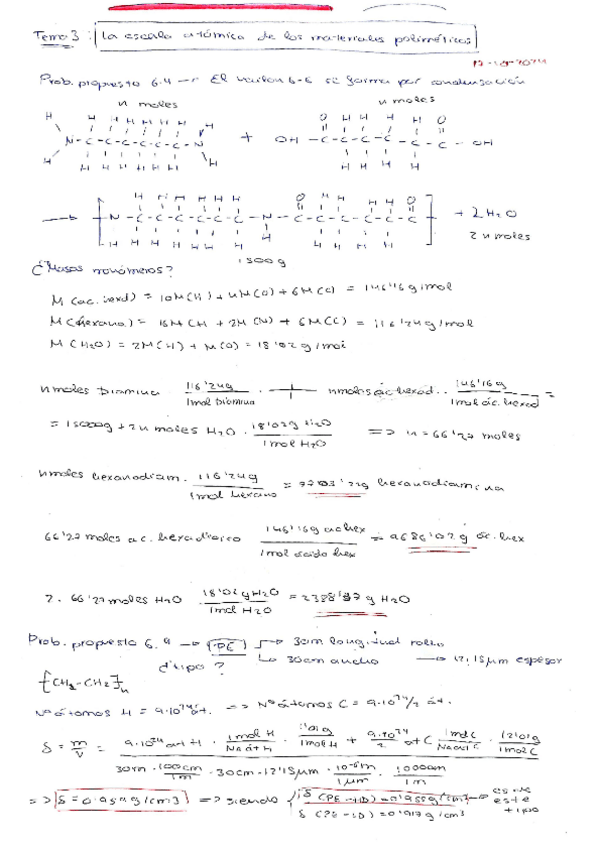 Tema 3: La escala atómica de los materiales poliméricos
17-10-2024
Prob. propuesto 6.4 → El nailon 6-6 se forma por condensación
n moles n moles
H H H H H H H H O H H H H O
N - C - C - C - C - C - C - N + OH - C - C - C - C - C - C - OH
H H H H H H H H H H H H
→ [ N - C - C - C - C - C - C - N - C - C - C - C - C - C ] + 2H2O
2n moles
¿Masas monómeros?
M(ac. hexd) = 10M(H) + 4M(O) + 6M(C) = 146'16 g/mol
M(hexano.) = 16M(H + 2M(N) + 6M(C) = 116'24 g/mol
M(H2O) = 2M(H) + M(O) = 18'02 g/mol
n moles Diamina . 116'24g / 1mol Diamina + n moles ác hexad. . 146'16g / 1mol ác. hexad =
= 15000g + 2n moles H2O . 18'02g H2O / 1mol H2O => n = 66'27 moles
n moles hexanodiam. . 116'24g / 1mol hexano = g hexanodiamina
66'27 moles ac. hexadioico 146'16g ac hex / 1mol ácido hex = 9686'02 g ác. hex
2. 66'27 moles H2O . 18'02 g H2O / 1mol H2O = g H2O
Prob. propuesto 6.9 → (PE) → 30m longitud rollo
¿tipo? → 30cm ancho → 12'15µm espesor
[CH2-CH2]n
Nº átomos H = 9·10^24 át. => Nº átomos C = 9·10^24/2 át.
δ = m/v = 9·10^24 at H . 1mol H / NA át H . 1'01g / 1mol H + 9·10^24 / 2 at C . 1mol C / NA át C . 12'01g / 1mol C
30m . 100cm / 1m . 30cm . 12'15µm . 10^-6m / 1µm . 100cm / 1m
=> δ = g/cm3 => siendo { δ (PE-HD) = 0'955 g/cm3 → es de este tipo
δ (PE-LD) = 0'917 g/cm3